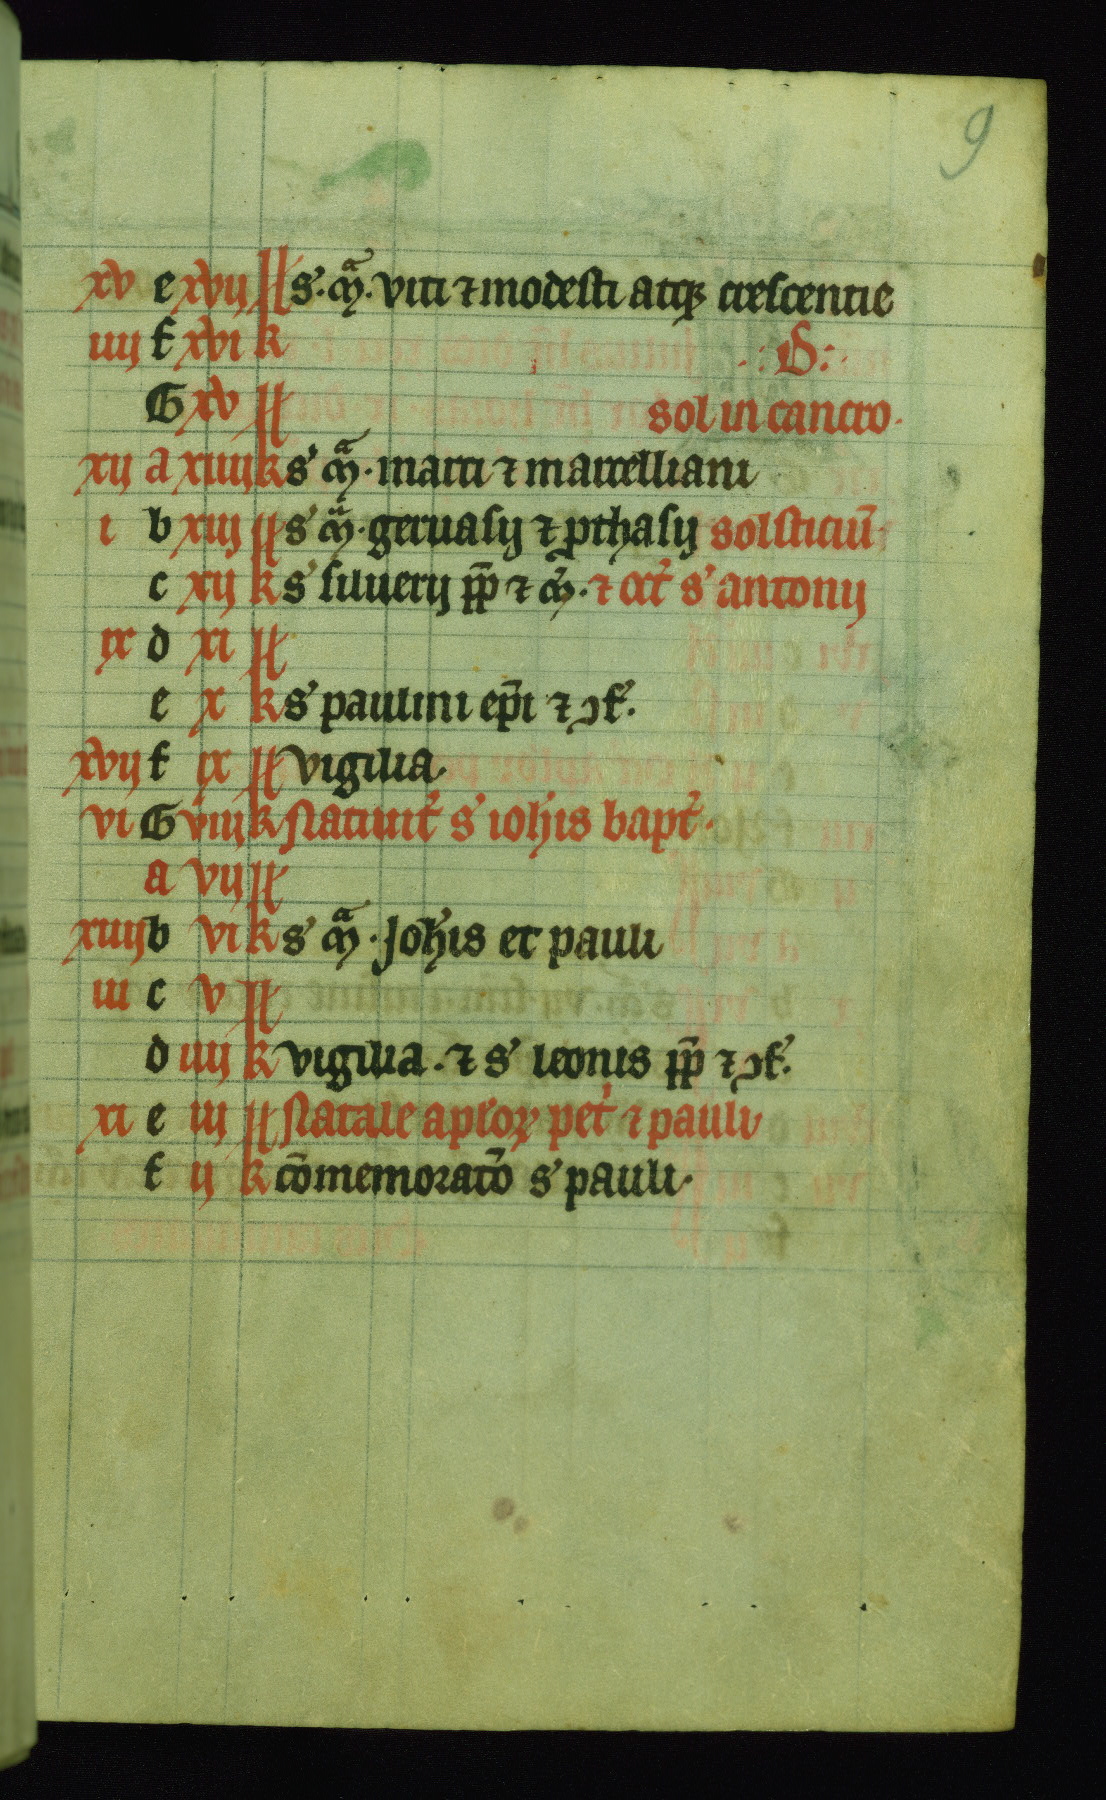 9
xv e xvii kl s'. mᷓ. viti ⁊ modesti atqꝫ crescentie
iiii f xvi k .:D:.
G xv kl sol in cancro.
xii a xiiii k s' mᷓ. marci ⁊ marcelliani
i b xiii kl s' mᷓ. geruasij ⁊ ꝓthasij solsticiū
c xii k s' siluerij pp̄ ⁊ m̄. ⁊ oct̄ s' antonij
ix d xi kl
e x k s' paulini ep̄i ⁊ ↄf̄.
xvii f ix kl vigilia.
vi G viii k Natiuit̄ s' ioħis bapt̄.
a vii kl
xiiii b vi k s' mᷓ. Joħis et pauli
iii c v kl
d iiii k vigilia. ⁊ s' leonis pp̄ ⁊ ↄf̄.
xi e iii kl Natale aploꝝ pet̄ ⁊ pauli
f ii k cōmemorat̄o s' pauli.